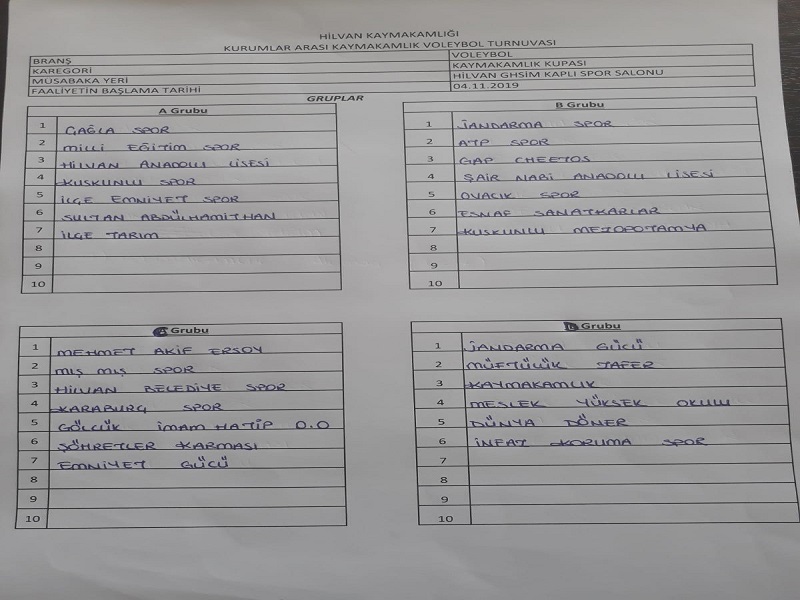 HİLVAN KAYMAKAMLIĞI
KURUMLAR ARASI KAYMAKAMLIK VOLEYBOL TURNUVASI
BRANŞ VOLEYBOL
KAREGORİ KAYMAKAMLIK KUPASI
MÜSABAKA YERİ HİLVAN GHSİM KAPLI SPOR SALONU
FAALİYETİN BAŞLAMA TARİHİ 04.11.2019
GRUPLAR
A Grubu
1 ÇAĞLA SPOR
2 MİLLİ EĞİTİM SPOR
3 HİLVAN ANADOLU LİSESİ
4 KUSKUNLU SPOR
5 İLÇE EMNİYET SPOR
6 SULTAN ABDÜLHAMİTHAN
7 İLÇE TARIM
8
9
10
B Grubu
1 JANDARMA SPOR
2 ATP SPOR
3 GAP CHEETOS
4 ŞAİR NABİ ANADOLU LİSESİ
5 OVACIK SPOR
6 ESNAF SANATKARLAR
7 KUSKUNLU MEZOPOTAMYA
8
9
10
Grubu
1 MEHMET AKİF ERSOY
2 MIŞ MIŞ SPOR
3 HİLVAN BELEDİYE SPOR
4 KARABURÇ SPOR
5 GÖLCÜK İMAM HATİP O.O
6 ŞÖHRETLER KARMASI
7 EMNİYET GÜCÜ
8
9
10
Grubu
1 JANDARMA GÜCÜ
2 MÜFTÜLÜK
3 KAYMAKAMLIK
4 MESLEK YÜKSEK OKULU
5 DÜNYA DÖNER
6 İNFAT KORUMA SPOR
7
8
9
10